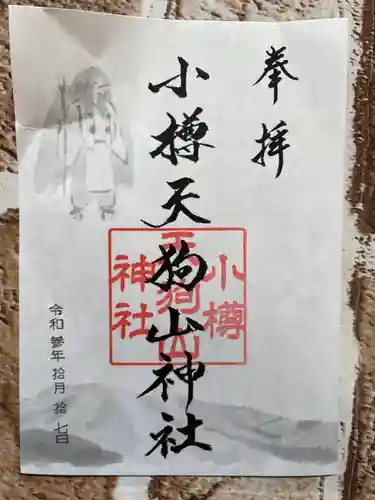 奉拝
小樽天狗山神社
小樽
天狗山
神社
令和參年拾月拾七日